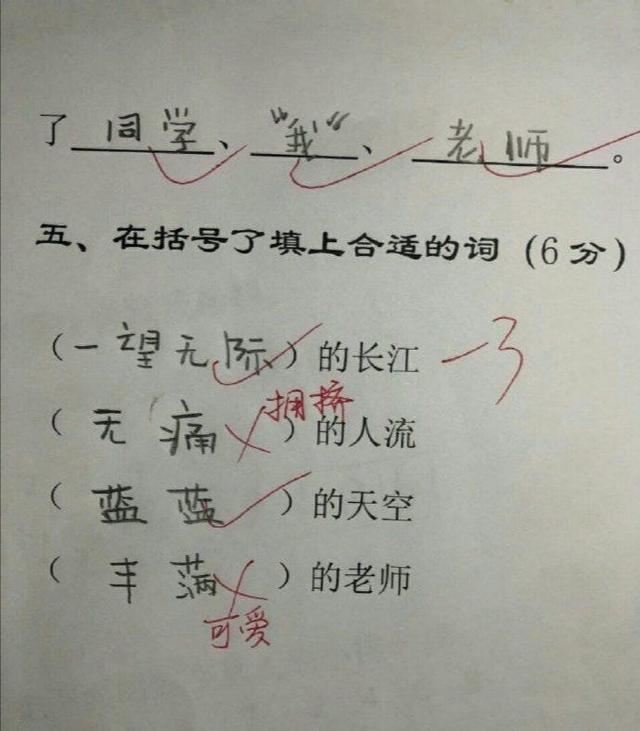 了 同学、“我”、老师。
五、在括号了填上合适的词（6分）
（一望无际）的长江 -3
（无痛 拥挤）的人流
（蓝蓝）的天空
（丰满）的老师
可爱